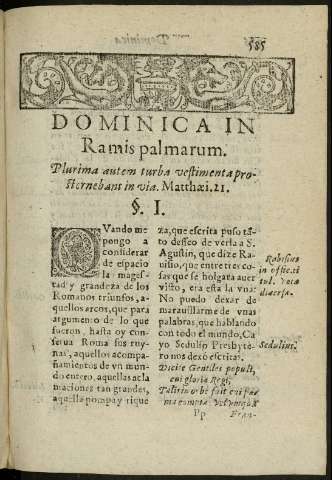 585
DOMINICA IN
Ramis palmarum.
Plurima autem turba vestimenta pro-
sternebant in via. Matthæi. 21.
§. I.
QVando me
pongo a
considerar
de espacio
la mages-
tad y grandeza de los
Romanos triunfos, a-
quellos arcos, que para
argumento de lo que
fueron, hasta oy con-
serua Roma sus ruy-
nas, aquellos acompa-
ñamientos de vn mun-
do entero, aquellas acla
maciones tan grandes,
aquella pompa y rique
za, que escrita puso tā-
to desseo de verla a S.
Agustin, que dize Ra-
uisio, que entre tres co-
sas que se holgara auer
visto, era esta la vna.
No puedo dexar de
marauillarme de vnas
palabras, que hablando
con todo el mundo, Ca
yo Sedulio Presbyte-
ro nos dexò escritas.
Dicite Gentiles populi,
cui gloria Regi,
ma compta
Pp
Rabisius
in offic. ti
tul.
diuersa.
Sedulius.